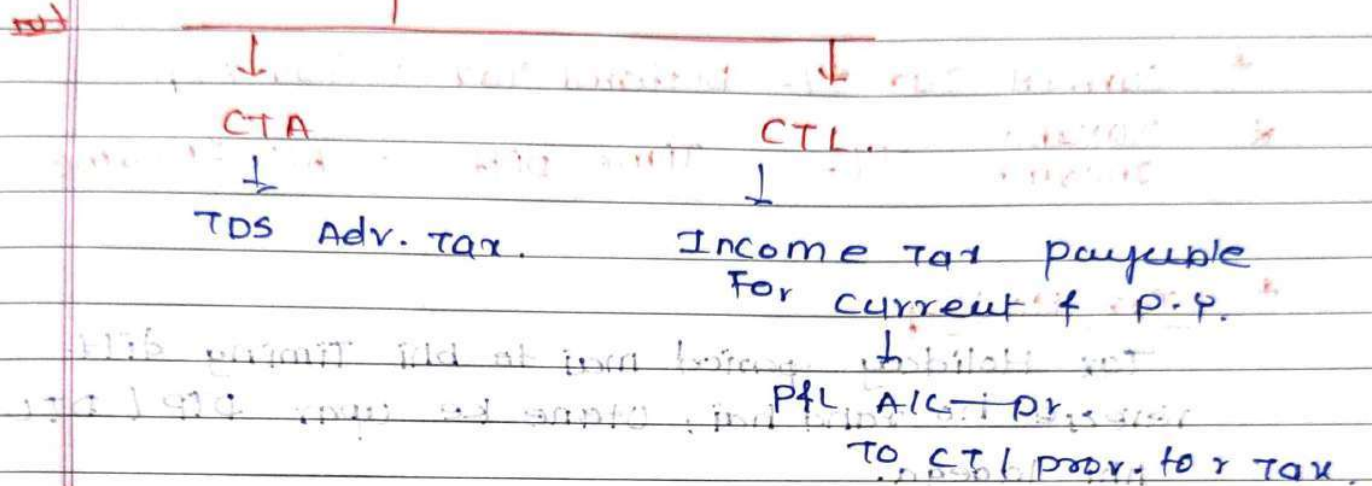 CTA CTL.
TDS Adv. Tax. Income Tax payable
For current & P.Y.
P&L A/c — Dr.
To CTL prov. for Tax.